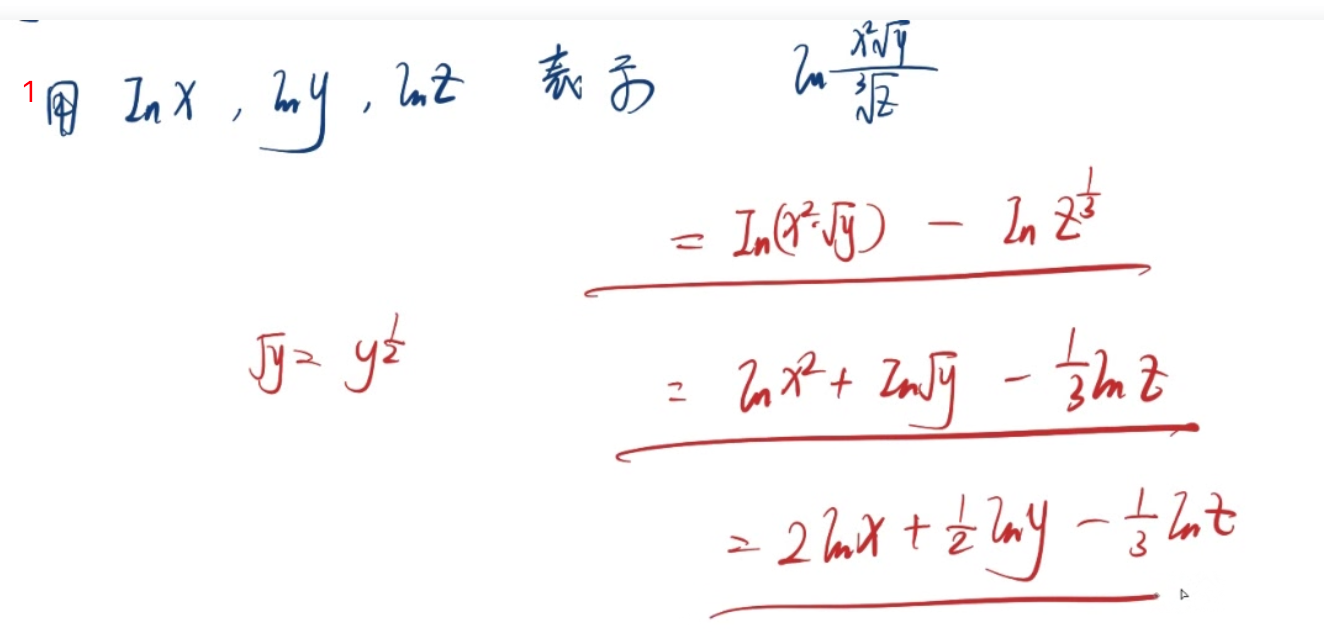 1 用 ln x , ln y , ln z 表示 ln x²√y / ³√z
= ln(x²·√y) - ln z^(1/3)
√y = y^(1/2)
= ln x² + ln √y - 1/3 ln z
= 2 ln x + 1/2 ln y - 1/3 ln z